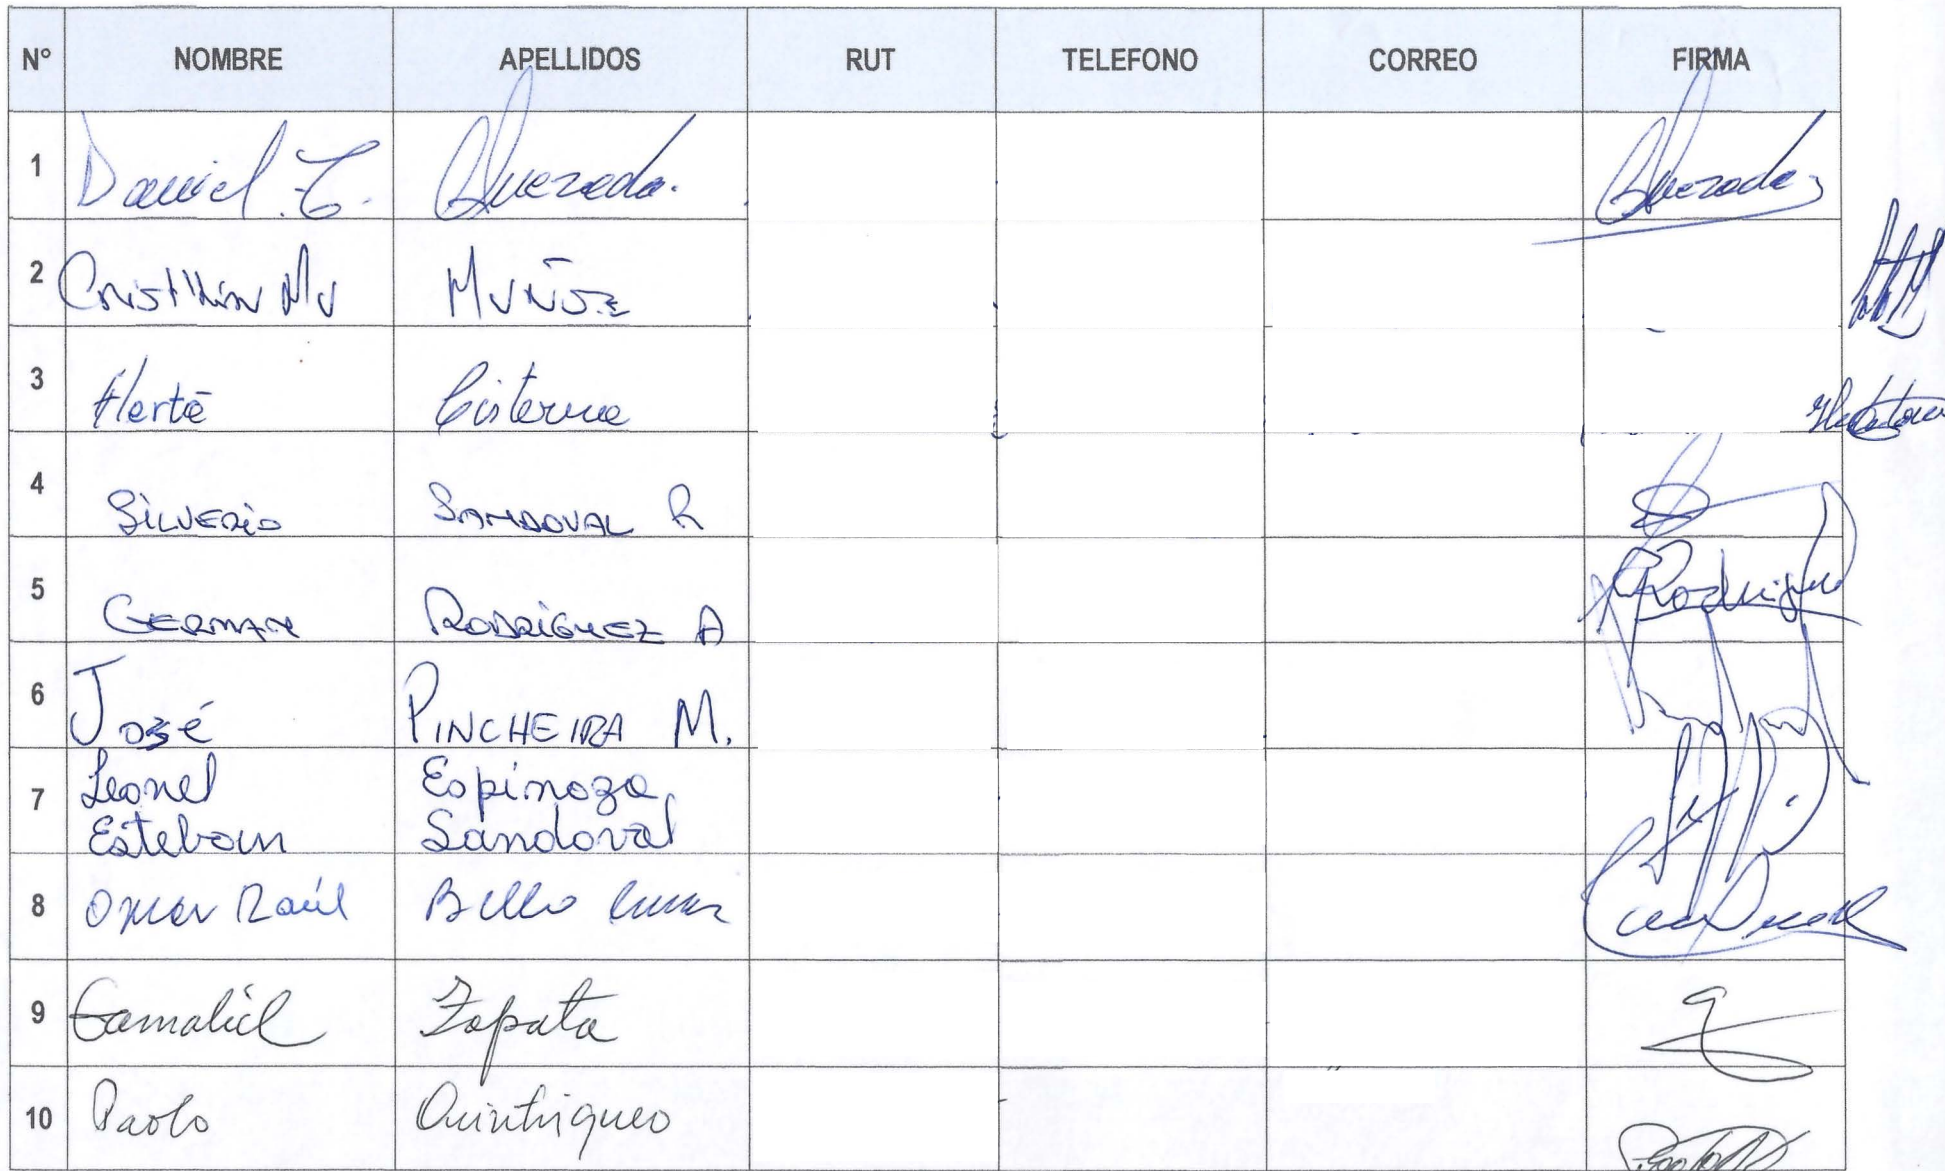 N° NOMBRE APELLIDOS RUT TELEFONO CORREO FIRMA
1 Daniel. E. Quezada. Quezada
2 Cristhian Mu MUÑOZ
3 Herta Cisterna
4 SILVERIO SANDOVAL R
5 GERMAN RODRIGUEZ A Rodriguez
6 José PINCHEIRA M.
7 Leonel Espinoza
Esteban Sandoval
8 Omar Raúl Bello
9 Gamaliel Zapata
10 Paolo Quintriqueo